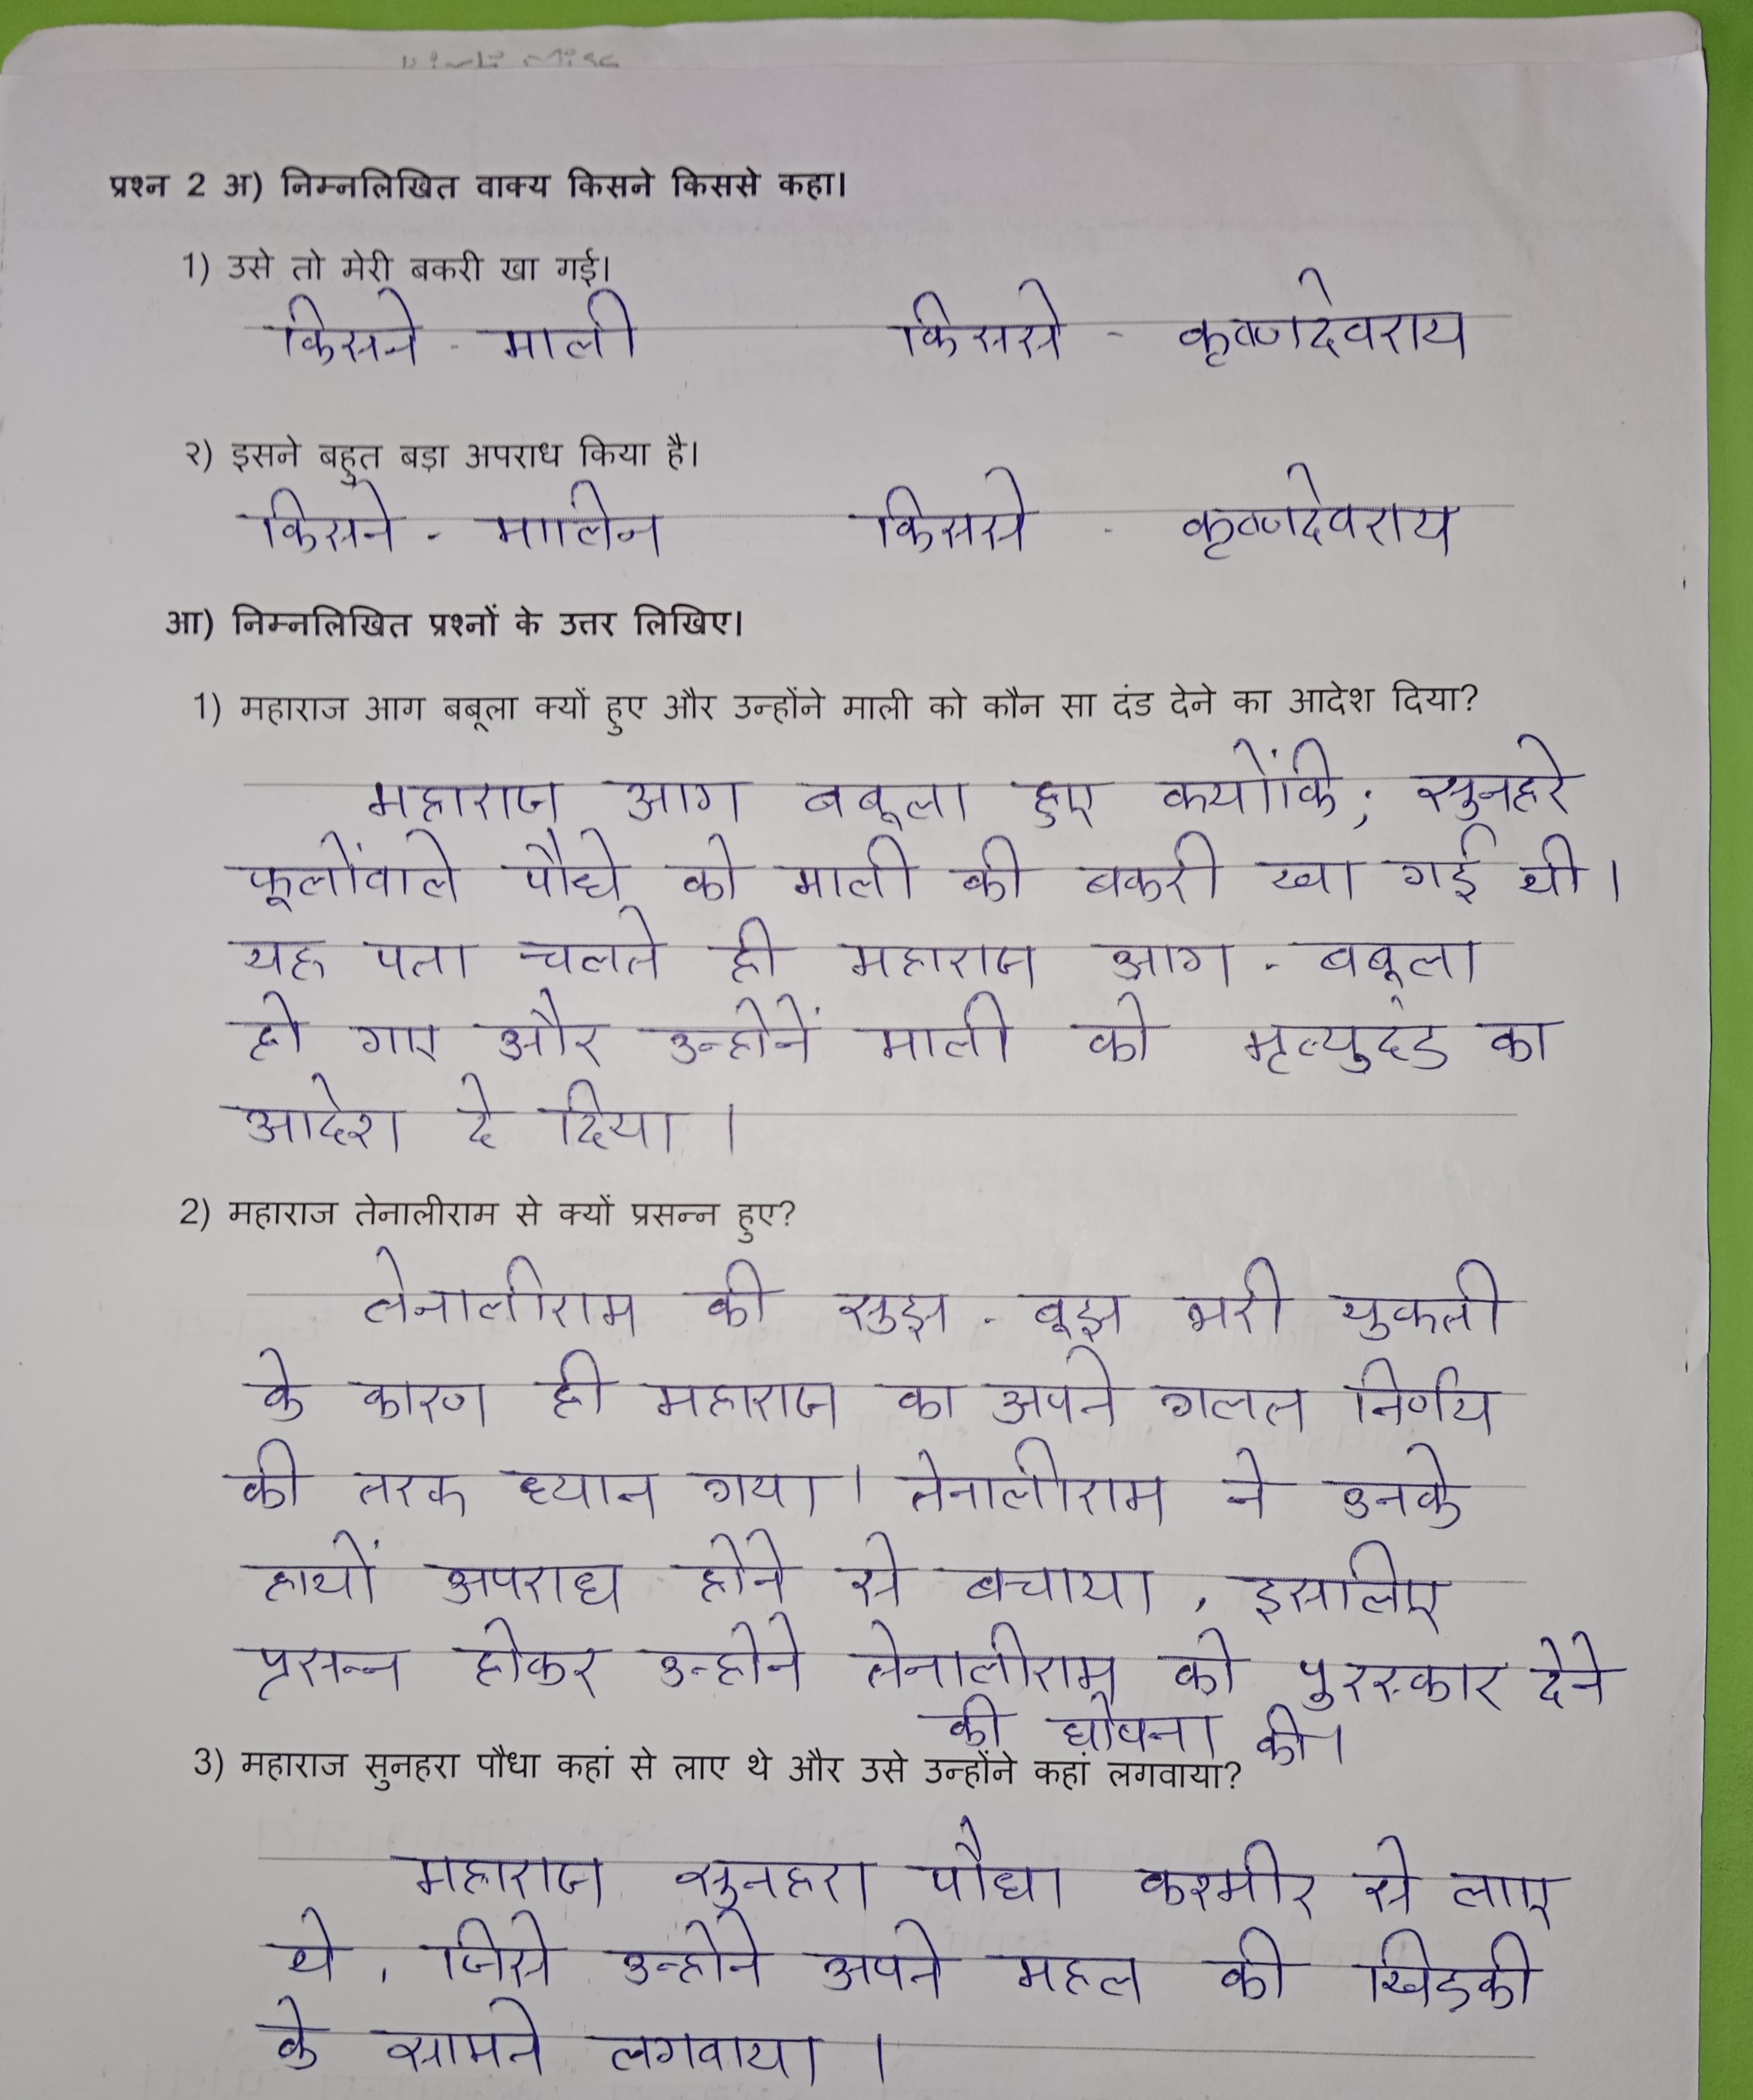 प्रश्न 2 अ) निम्नलिखित वाक्य किसने किससे कहा।
1) उसे तो मेरी बकरी खा गई।
किसने - माली किससे - कृष्णदेवराय
२) इसने बहुत बड़ा अपराध किया है।
किसने - मालिन किससे - कृष्णदेवराय
आ) निम्नलिखित प्रश्नों के उत्तर लिखिए।
1) महाराज आग बबूला क्यों हुए और उन्होंने माली को कौन सा दंड देने का आदेश दिया?
महाराज आग बबूला हुए क्योंकि, सुनहरे
फूलोंवाले पौधे को माली की बकरी खा गई थी।
यह पता चलते ही महाराज आग - बबूला
हो गए और उन्होनें माली को मृत्युदंड का
आदेश दे दिया ।
2) महाराज तेनालीराम से क्यों प्रसन्न हुए?
तेनालीराम की सुझ - बूझ भरी युकती
के कारण ही महाराज का अपने गलत निर्णय
की तरफ ध्यान गया। तेनालीराम ने उनके
हाथों अपराध होने से बचाया, इसलिए
प्रसन्न होकर उन्होने तेनालीराम को पुरस्कार देने
की घोषना की।
3) महाराज सुनहरा पौधा कहां से लाए थे और उसे उन्होंने कहां लगवाया?
महाराज सुनहरा पौधा कश्मीर से लाए
थे, जिसे उन्होने अपने महल की खिडकी
के सामने लगवाया ।